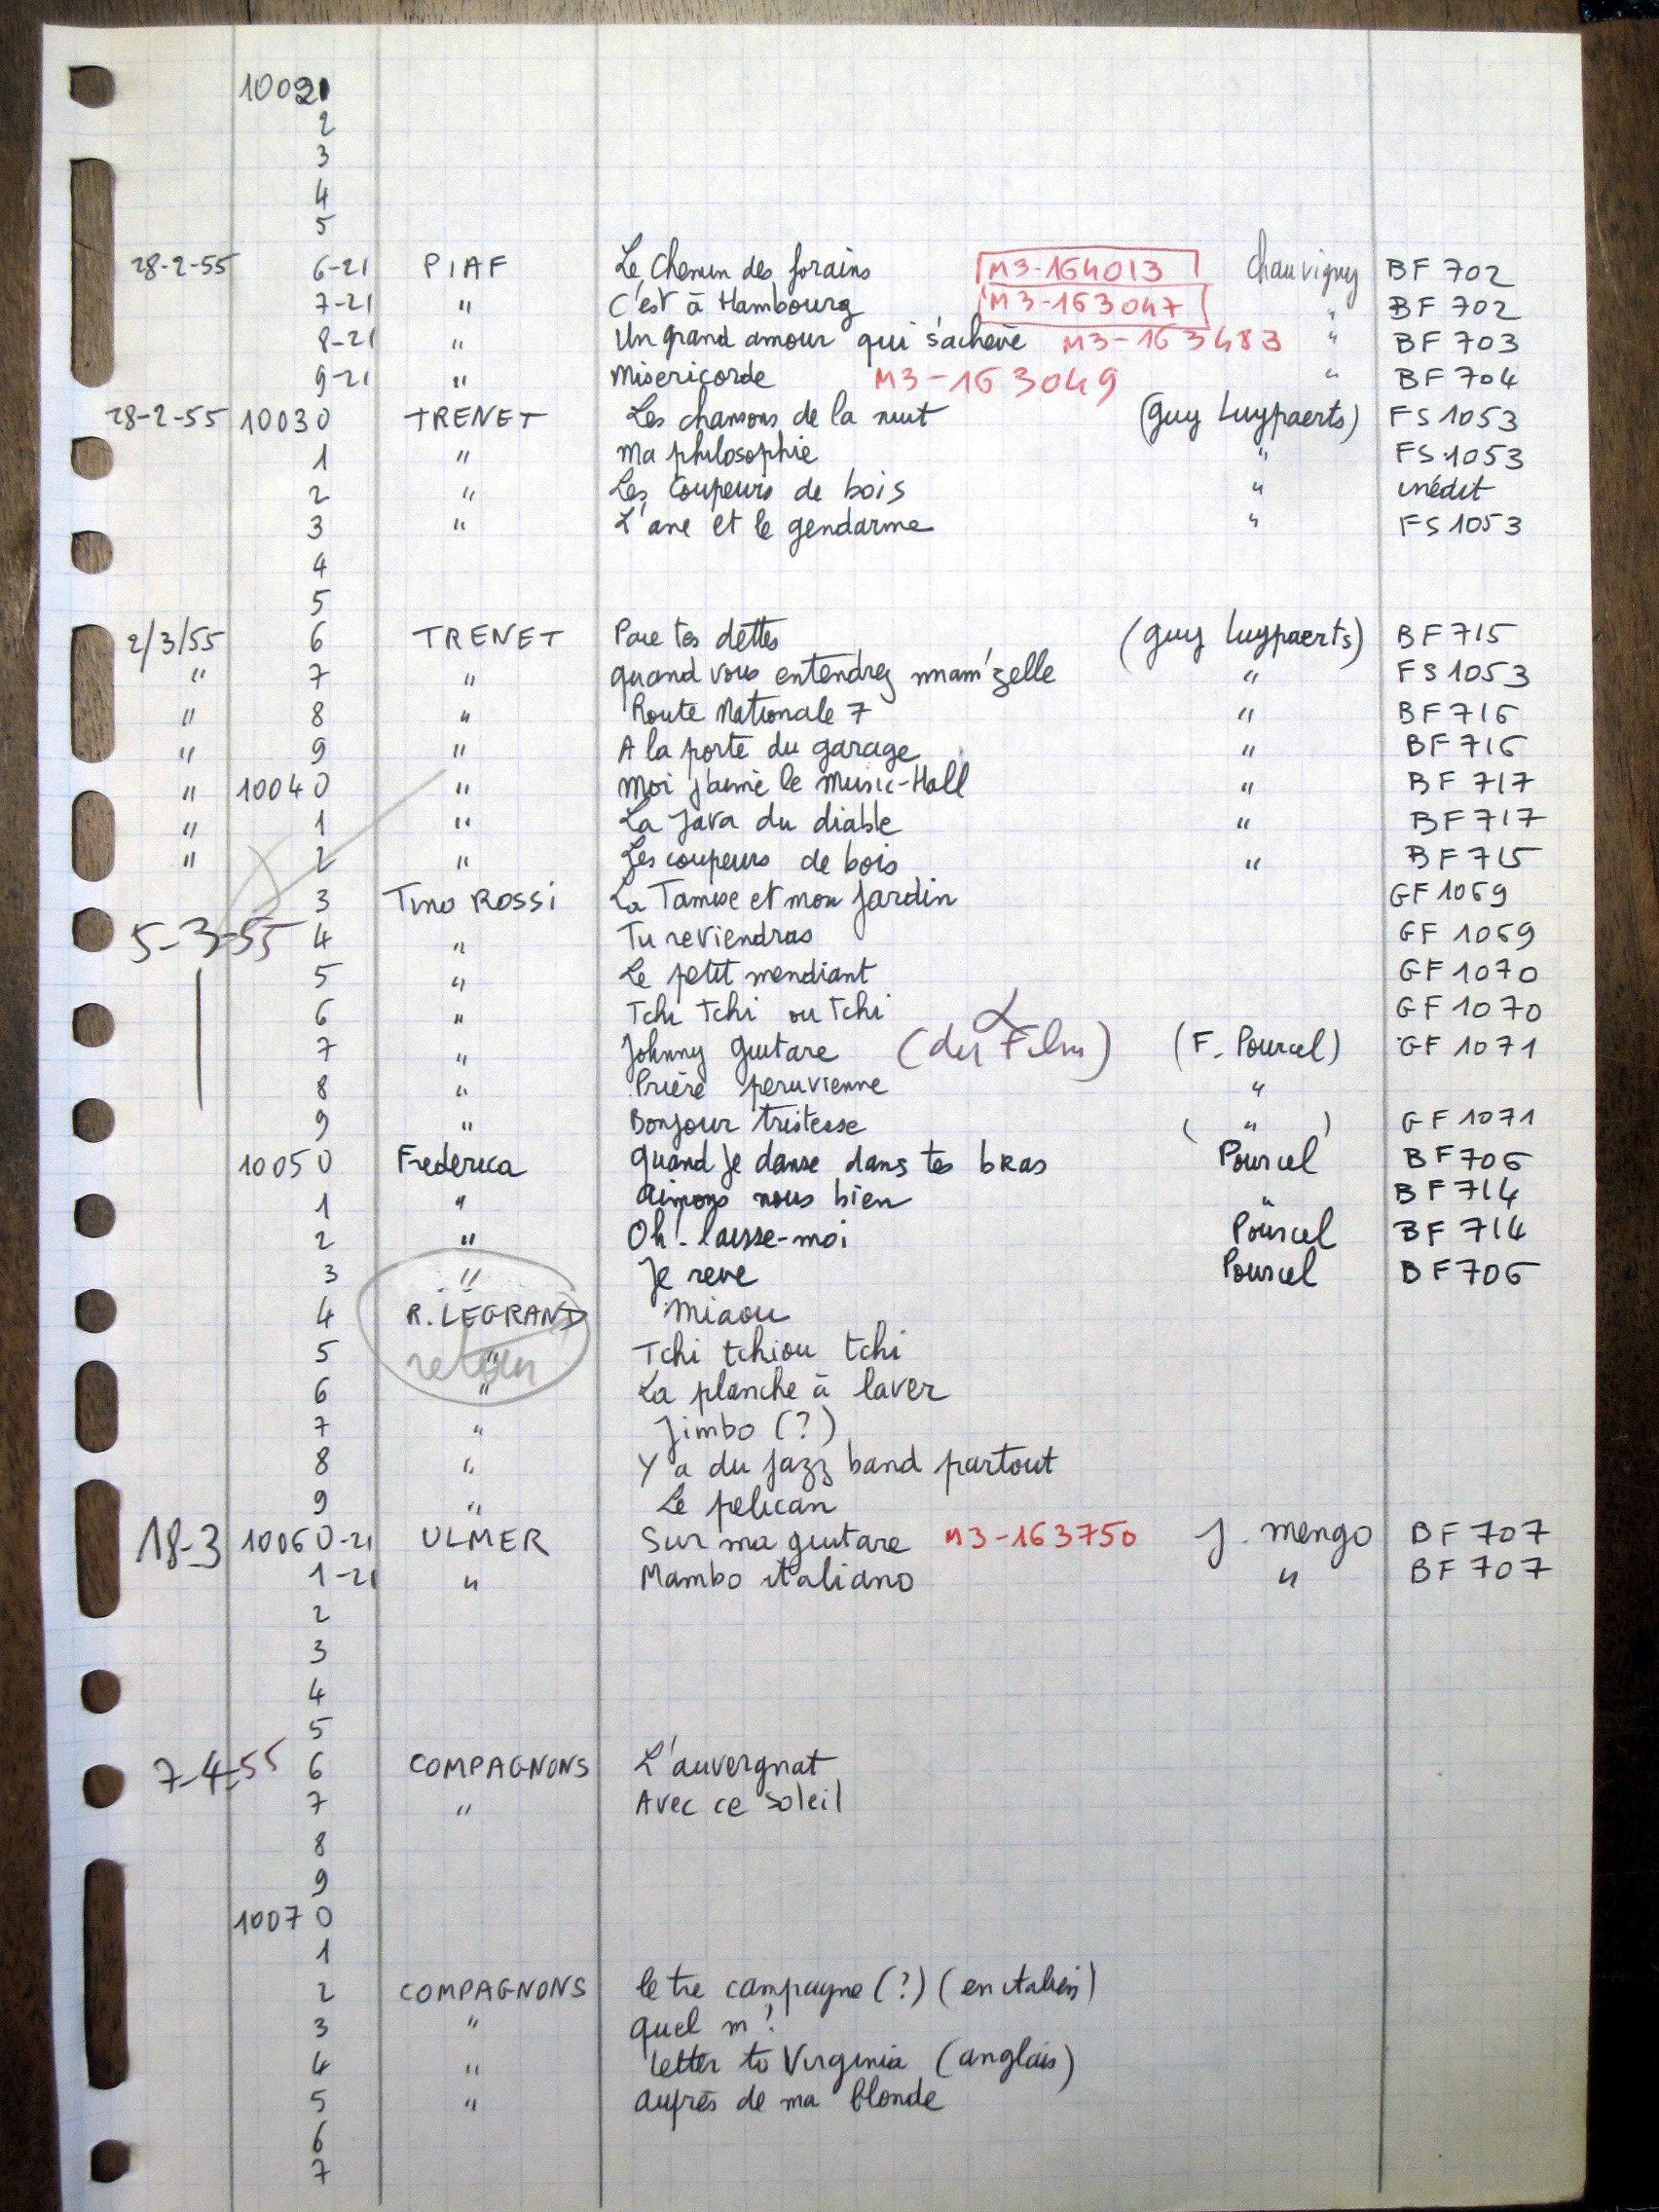 10021
2
3
4
5
28-2-55 6-21 PIAF Le chemin des forains M3-164013 Chauvigny BF 702
7-21 " C'est à Hambourg M3-163047 " BF 702
8-21 " Un grand amour qui s'achève M3-163483 " BF 703
9-21 " Misericorde M3-163049 " BF 704
28-2-55 10030 TRENET Les chansons de la nuit (Guy Luypaerts) FS 1053
1 " Ma philosophie " FS 1053
2 " Les Coupeurs de bois " inédit
3 " L'ane et le gendarme " FS 1053
4
5
2/3/55 6 TRENET Paie tes dettes (Guy Luypaerts) BF 715
" 7 " quand vous entendrez mam'zelle " FS 1053
" 8 " Route Nationale 7 " BF 716
" 9 " A la porte du garage " BF 716
" 10040 " Moi j'aime le Music-Hall " BF 717
" 1 " La Java du diable " BF 717
" 2 " Les coupeurs de bois " BF 715
3 Tino ROSSI La Tamise et mon Jardin GF 1069
5-3-55 4 " Tu reviendras GF 1069
5 " Le petit mendiant GF 1070
6 " Tchi Tchi ou Tchi GF 1070
7 " Johnny Guitare (du Film) (F. Pourcel) GF 1071
8 " Prière peruvienne "
9 " Bonjour tristesse ( " ) GF 1071
10050 Frederica Quand Je danse dans tes bras Pourcel BF 706
1 " Aimons nous bien " BF 714
2 " Oh! laisse-moi Pourcel BF 714
3 " Je reve Pourcel BF 706
4 R. LEGRAND Miaou
5 " Tchi tchiou tchi
6 " La planche à laver
7 " Jimbo (?)
8 " Y a du Jazz band partout
9 " Le pelican
18-3 10060-21 ULMER Sur ma guitare M3-163750 J. Mengo BF 707
1-21 " Mambo italiano " BF 707
2
3
4
5
7-4-55 6 COMPAGNONS L'auvergnat
7 " Avec ce soleil
8
9
10070
1
2 COMPAGNONS le tre campagne (?) (en italien)
3 " quel m?
4 " Letter to Virginia (anglais)
5 " auprès de ma blonde
6
7